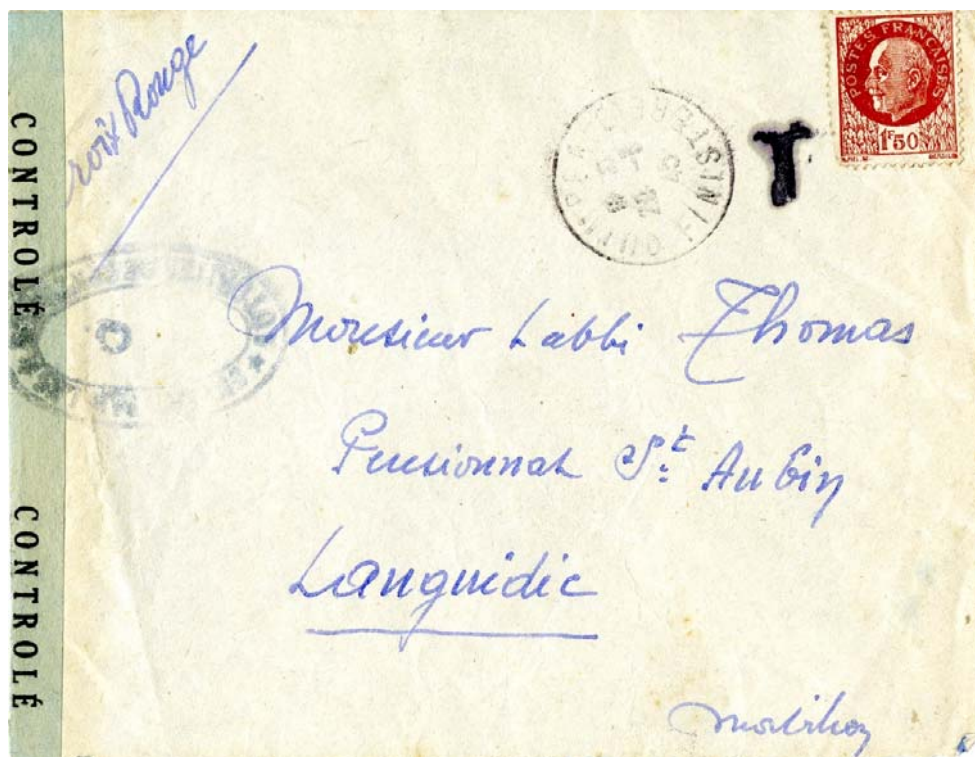 CONTROLÉ
CONTROLÉ
roix Rouge
POSTES FRANÇAISES
1F50
T
QUIMPER
FINISTERE
C
Monsieur Labbi Thomas
Pensionnat St Aubin
Languidic
Morbihan